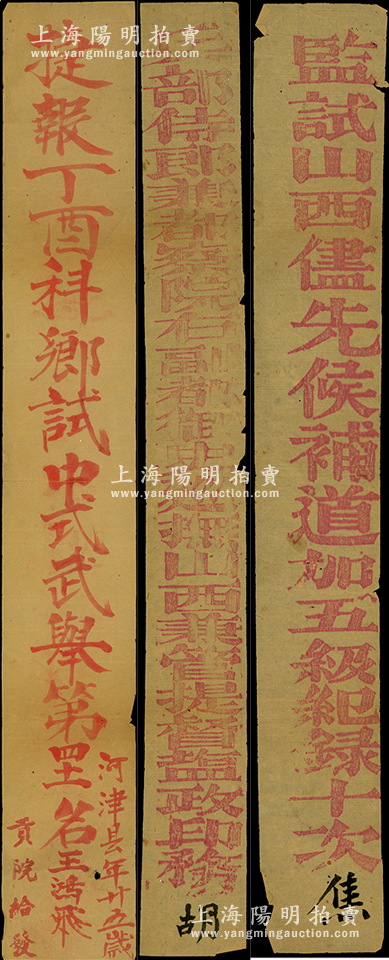 監試山西儘先候補道加五級紀錄十次
焦
兵部侍郎兼都察院右副都御史巡撫山西兼管提督鹽政印務
胡
捷報丁酉科鄉試中式武舉第四十一名王鴻飛
河津县年廿五歲
貢院給發
上海陽明拍賣
www.yangmingauction.com
上海陽明拍賣
www.yangmingauction.com
上海陽明拍賣
www.yangmingauction.com